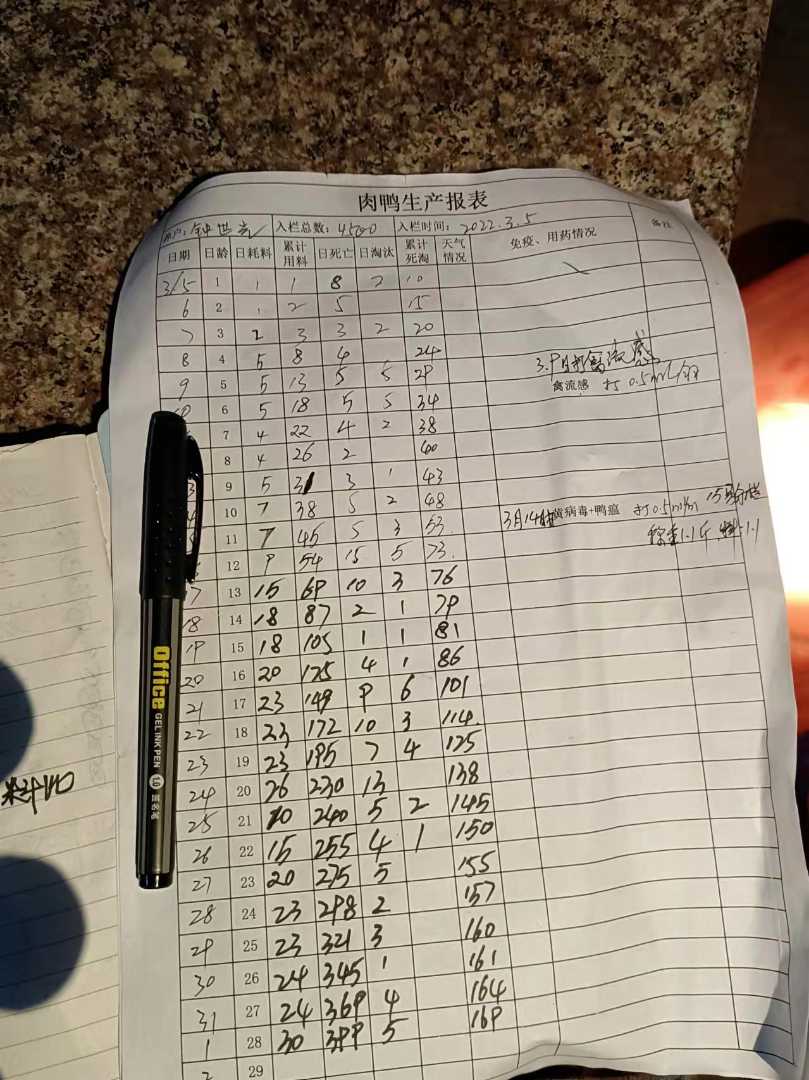 肉鸭生产报表
入栏总数: 4500 入栏时间: 2022.3.5 免疫、用药情况 备注
日期 日龄 日耗料 累计用料 日死亡 日淘汰 累计死淘 天气情况
3/5 1 1 1 8 2 10
6 2 1 2 5 15
7 3 2 3 3 2 20
8 4 5 8 4 24
9 5 5 13 5 5 29 禽流感 打0.5ml/
6 5 18 5 5 34
7 4 22 4 2 38
8 4 26 2 40
3 9 5 31 3 1 43
10 7 38 5 2 48
11 7 45 5 3 53 3月14 病毒+鸭瘟 打0.5ml/
12 9 54 15 5 73
7 13 15 69 10 3 76
18 14 18 87 2 1 79
19 15 18 105 1 1 81
20 16 20 125 4 1 86
21 17 23 149 9 6 101
22 18 23 172 10 3 114
23 19 23 195 7 4 125
24 20 26 230 13 138
25 21 10 240 5 2 145
26 22 15 255 4 1 150
27 23 20 275 5 155
28 24 23 298 2 157
29 25 23 321 3 160
30 26 24 345 1 161
31 27 24 369 4 164
1 28 30 399 5 169
2 29
Office
GEL INK PEN 1.0 签名笔